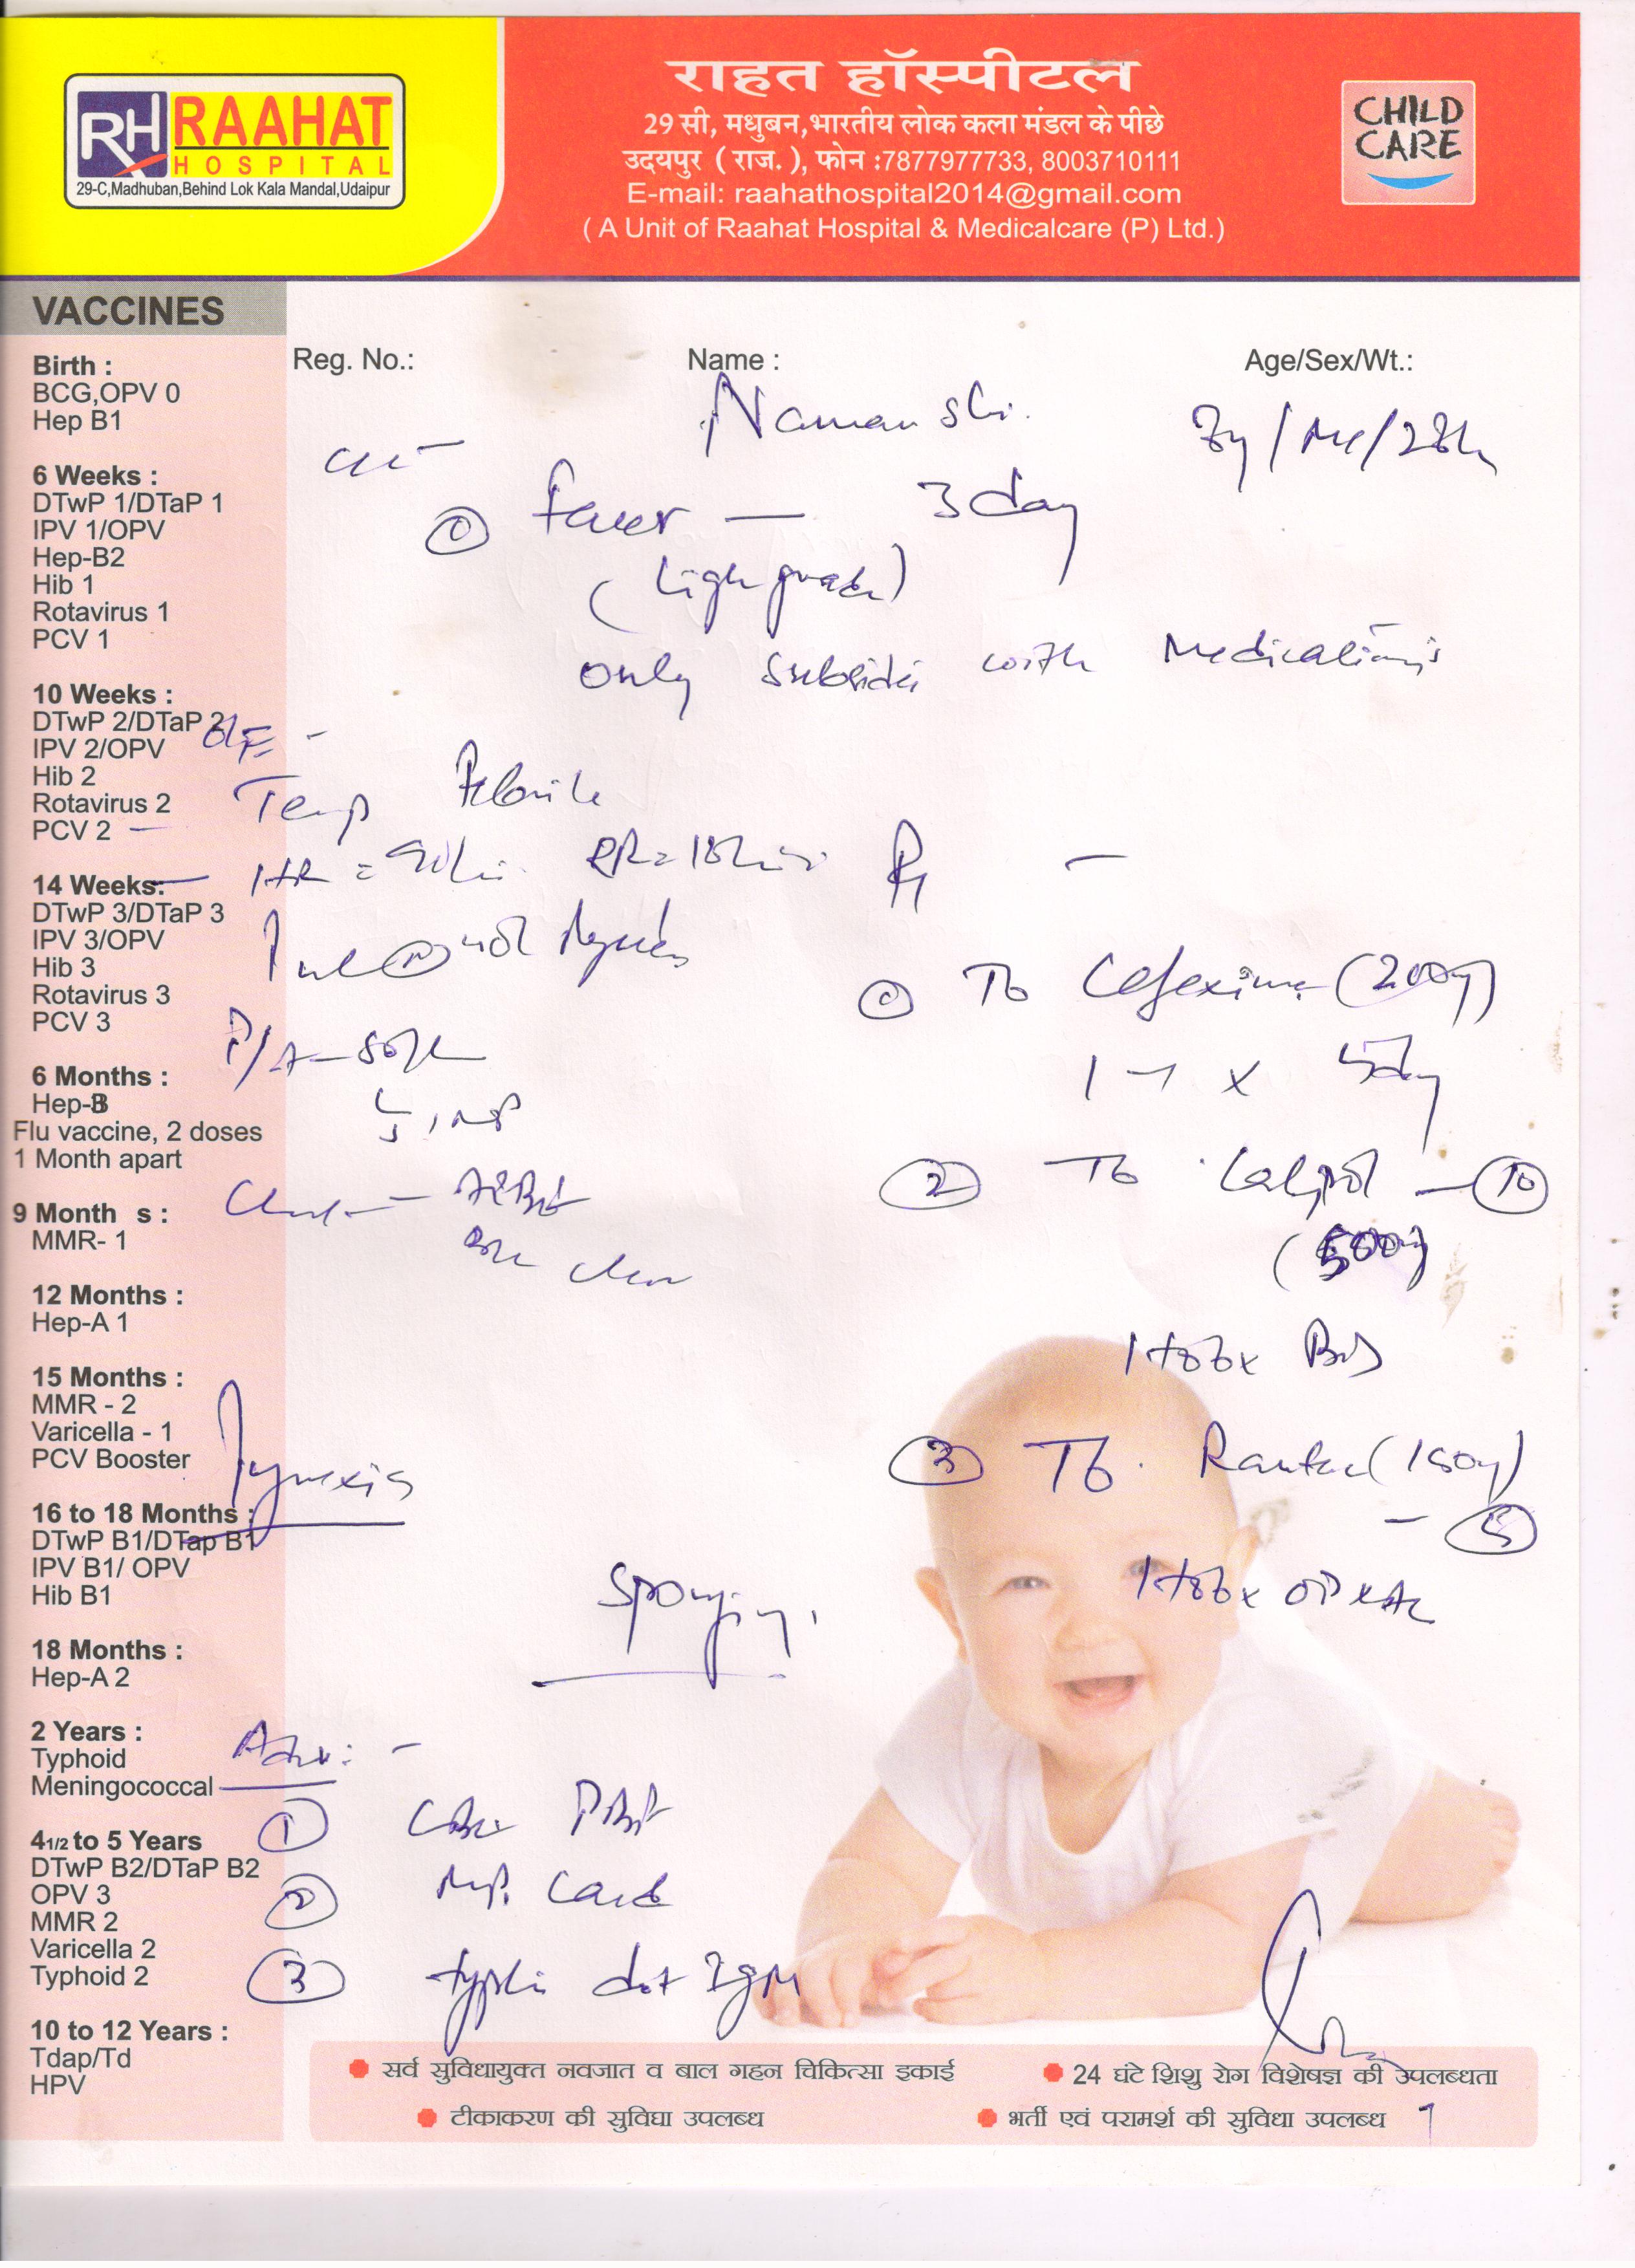 RH RAAHAT
HOSPITAL
29-C,Madhuban,Behind Lok Kala Mandal,Udaipur
राहत हॉस्पीटल
29 सी, मधुबन,भारतीय लोक कला मंडल के पीछे
उदयपुर ( राज. ), फोन :7877977733, 8003710111
E-mail: raahathospital2014@gmail.com
( A Unit of Raahat Hospital & Medicalcare (P) Ltd.)
CHILD
CARE
VACCINES
Birth :
BCG,OPV 0
Hep B1
6 Weeks :
DTwP 1/DTaP 1
IPV 1/OPV
Hep-B2
Hib 1
Rotavirus 1
PCV 1
10 Weeks :
DTwP 2/DTaP 2
IPV 2/OPV
Hib 2
Rotavirus 2
PCV 2
14 Weeks:
DTwP 3/DTaP 3
IPV 3/OPV
Hib 3
Rotavirus 3
PCV 3
6 Months :
Hep-B3
Flu vaccine, 2 doses
1 Month apart
9 Month s :
MMR- 1
12 Months :
Hep-A 1
15 Months :
MMR - 2
Varicella - 1
PCV Booster
16 to 18 Months :
DTwP B1/DTap B1
IPV B1/ OPV
Hib B1
18 Months :
Hep-A 2
2 Years :
Typhoid
Meningococcal
4 1/2 to 5 Years
DTwP B2/DTaP B2
OPV 3
MMR 2
Varicella 2
Typhoid 2
10 to 12 Years :
Tdap/Td
HPV
Reg. No.: Name : Age/Sex/Wt.:
① fever — 3 day
(high grade)
only subsides with Medications
O/E -
Temp Febrile
HR = RR =
P/A - soft
Chest -
clear
Pyrexia
Sponging.
Adv: -
① CBC PBF
② MP. Card
③ typhi dot IgM
Rx -
① Tb Cefexime (200mg)
1 - 1 x 5day
② Tb Calpol - ⑩
(500mg)
1 tab x BD
③ Tb. Rantac (150mg)
- ⑤
1 tab x OD x
सर्व सुविधायुक्त नवजात व बाल गहन चिकित्सा इकाई
24 घंटे शिशु रोग विशेषज्ञ की उपलब्धता
टीकाकरण की सुविधा उपलब्ध
भर्ती एवं परामर्श की सुविधा उपलब्ध